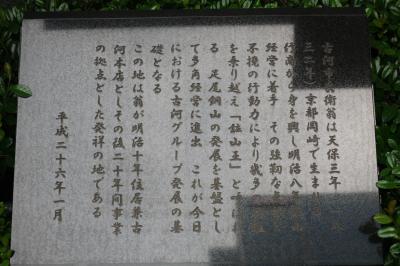 古河市兵衛翁は天保三年
三二年 京都岡崎で生まれ
行商から身を興し明治八年
経営に着手 その強靭な
不撓の行動力により幾多の
を乗り越え「鉱山王」と
る 足尾銅山の発展を基盤とし
て多角経営に進出 これが今日
における古河グループ発展の基
礎となる
この地は翁が明治十年住居兼古
河本店としその後二十年間事業
の拠点とした発祥の地である
平成二十六年一月